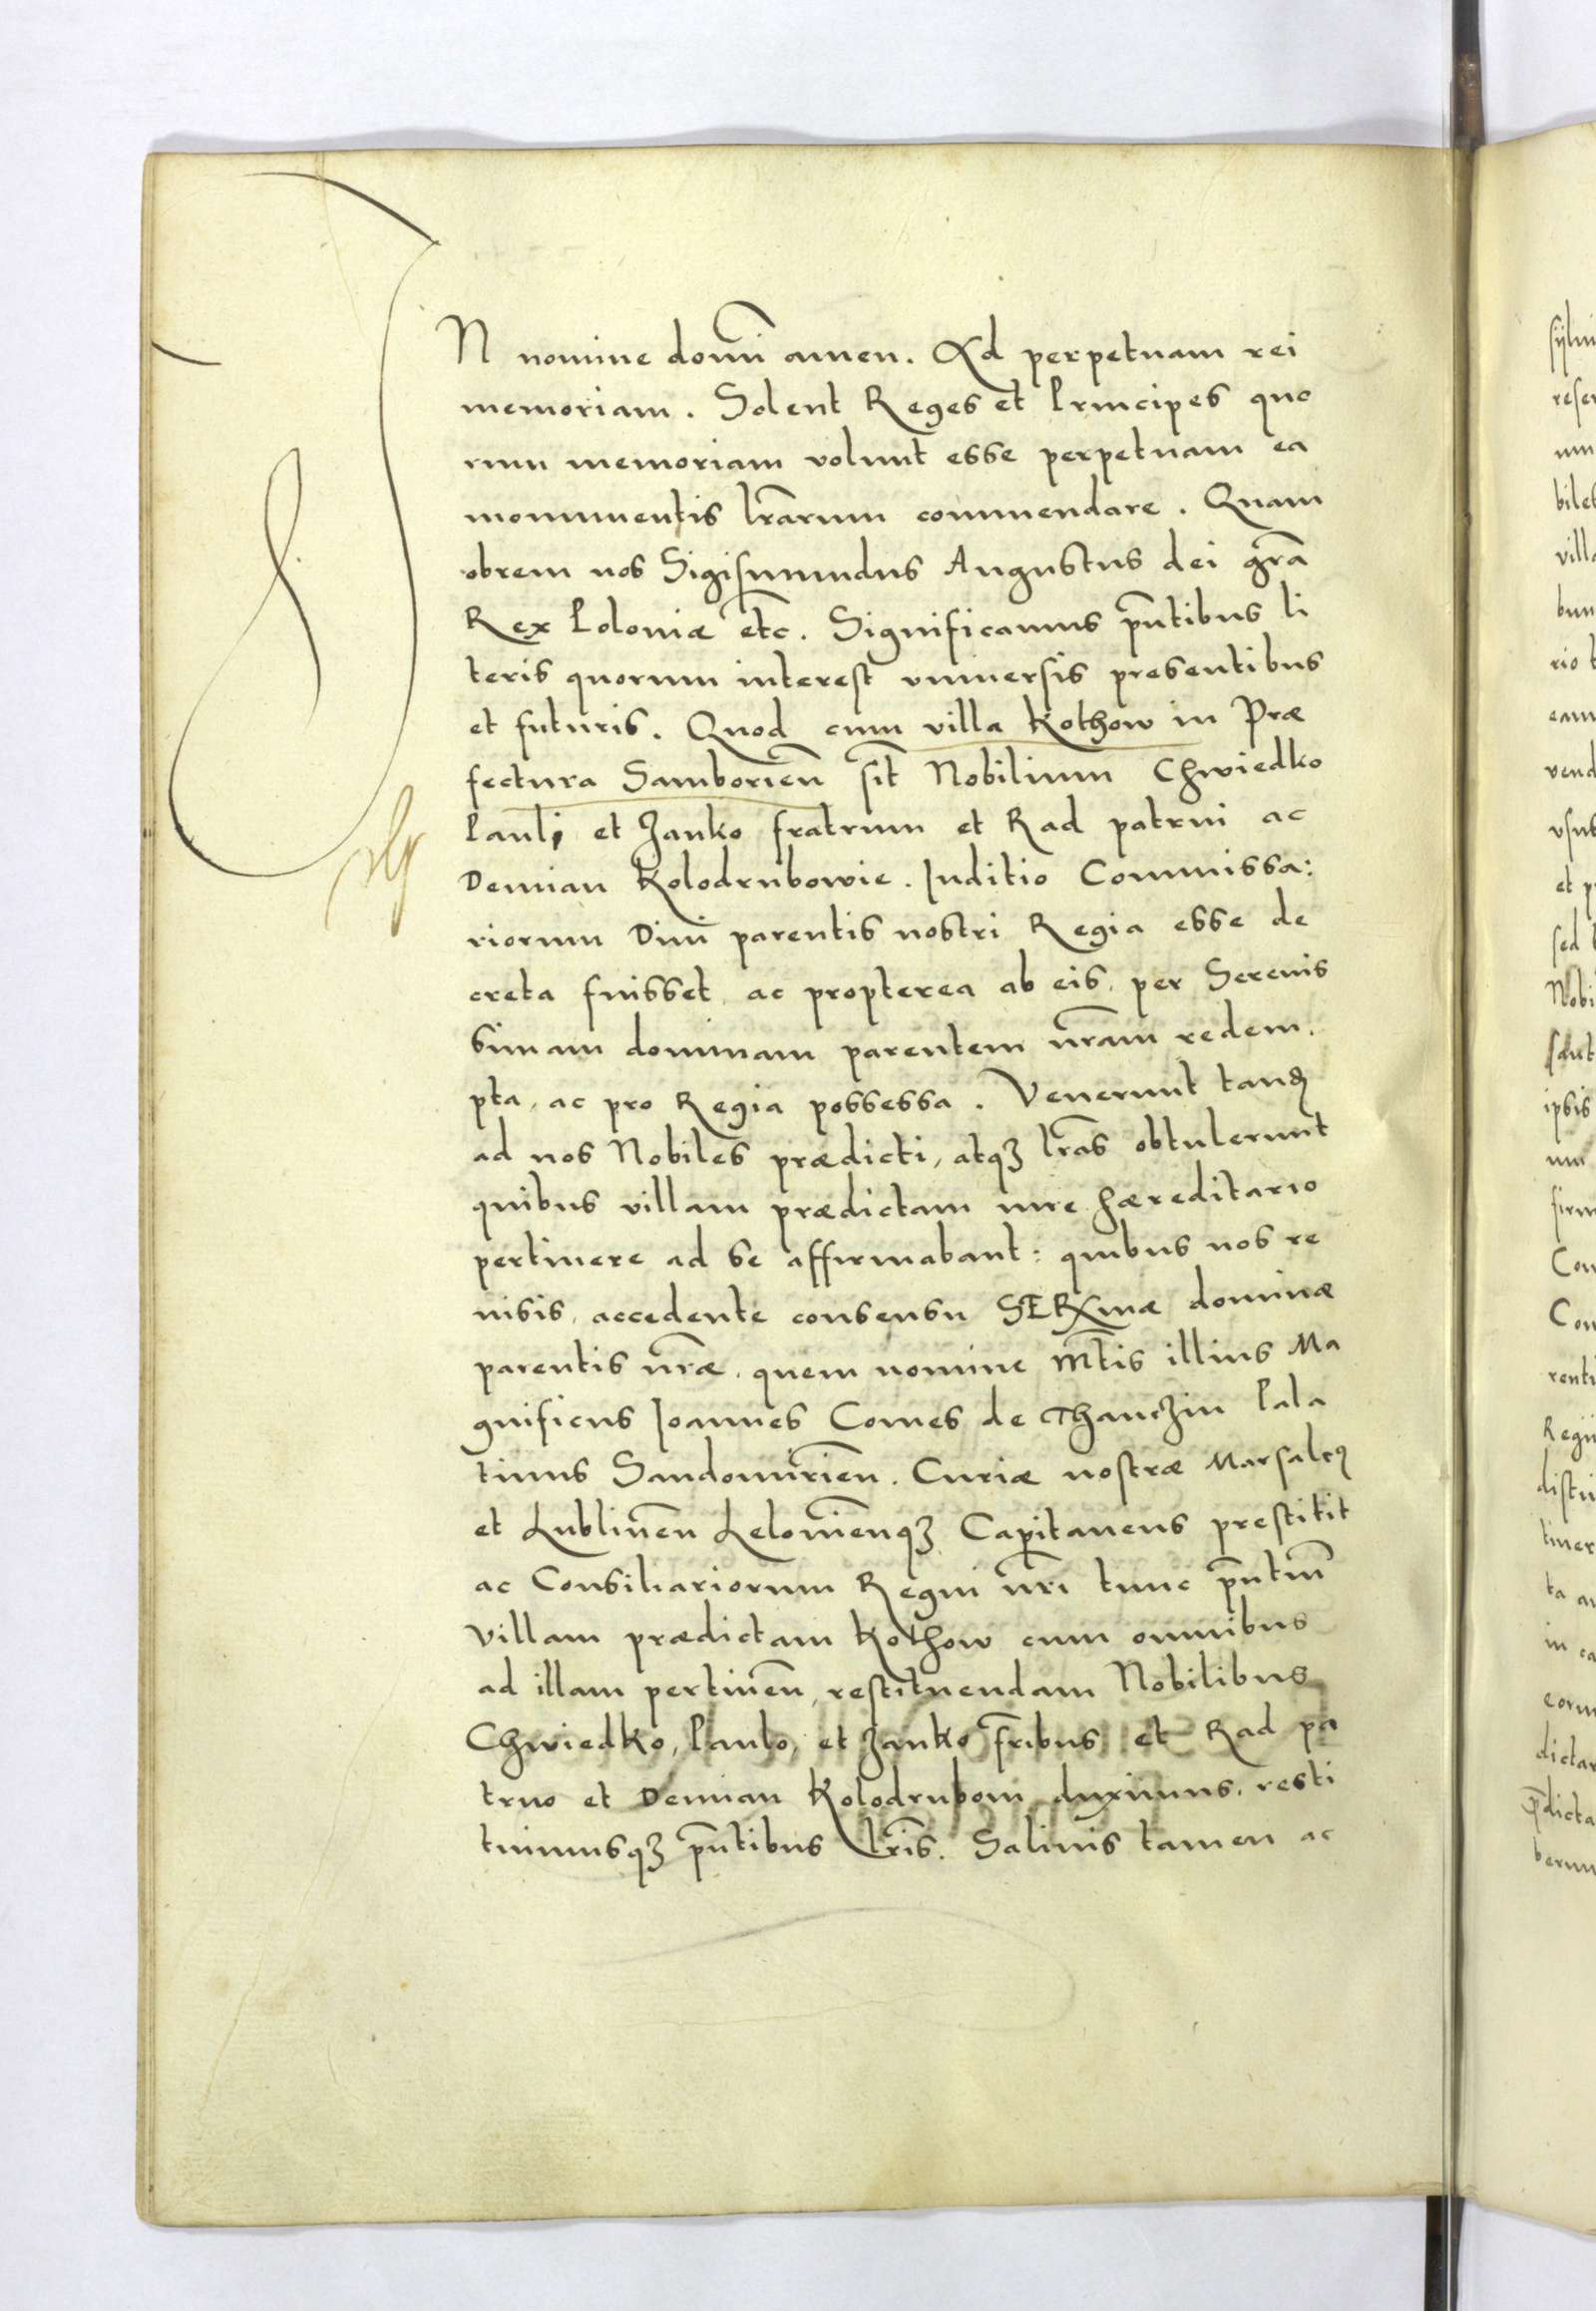 IN nomine domī amen. Ad perpetuam rei
memoriam. Solent Reges et Principes quo
rum memoriam volunt esse perpetuam ea
monumentis lr̄arum commendare. Quam
obrem nos Sigismundus Augustus dei gr̄a
Rex Poloniæ etc. Significamus pn̄tibus li
teris quorum interest vniuersis presentibus
et futuris. Quod cum villa Kothow in Præ
fectura Samborien̄ sit Nobilium Chwiedko
Pauli et Janko fratrum et Rad patrui ac
Demian Kolodrubowie. Iuditio Commissa:
riorum Diui parentis nostri Regia esse de
creta fuisset ac propterea ab eis, per Serenis
simam dominam parentem nr̄am redem.
pta, ac pro Regia possessa. Venerunt tandē
ad nos Nobiles prædicti, atqȝ lr̄as obtulerunt
quibus villam prædictam iure hæreditario
pertinere ad se affirmabant: quibus nos re
uisis, accedente consensu SERxmæ dominæ
parentis nr̄æ. quem nomine Mt̄is illius Ma
gnificus Joannes Comes de Thanczin Pala
tinus Sandomirien̄. Curiæ nostræ Marsalcꝯ
et Lublinen̄ Lelouien̄qȝ Capitaneus prestitit
ac Consiliariorum Regni nr̄i tunc pn̄tiū
villam prædictam Kothow cum omnibus
ad illam pertinen̄, restituendam Nobilibus
Chwiedko, Paulo, et Janko fr̄ibus et Rad pa
truo et Demian Kolodruboui duximus, resti
tuimusqȝ pn̄tibus lr̄is. Saluis tamen ac